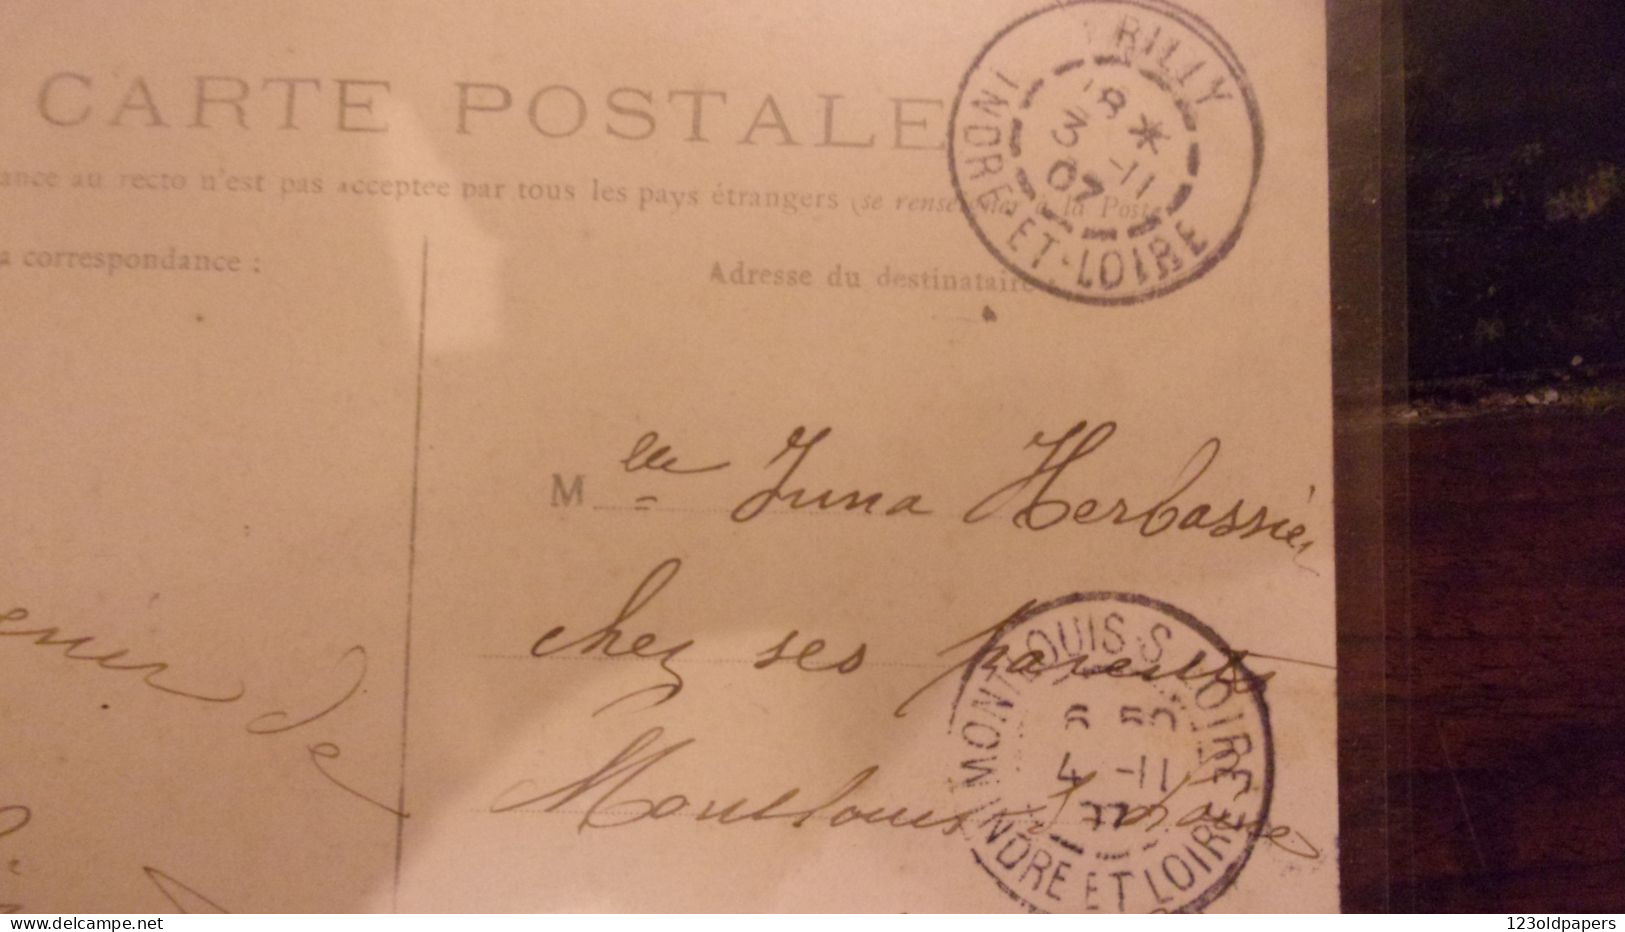 CARTE POSTALE
ance au recto n'est pas acceptée par tous les pays étrangers (se renseigner à la Poste
a correspondance :
Adresse du destinataire
RILLY
18 *
3 -11
07
INDRE-ET-LOIRE
M lle Juna Herbassier
chez ses parents
Montlouis s Loire
MONTLOUIS S. LOIRE
4 -11
INDRE ET LOIRE
de
123oldpapers